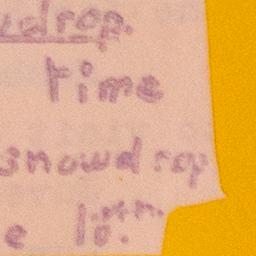 drop.
time
snowdrop
e 10.